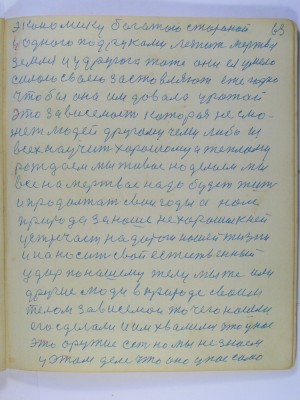 экономику богатою стороной
63
у одного под руками лежит мертва
земля и у другого тоже они ее умело
силою своею заставляют ежегодно
чтобы она им довала урожай
это зависемость которая не смо-
жет людей другому чему либо и
всех научит хорошому и тежелому
рождаем мы живое но делаем мы
все на мертвое надо будет жит
и продолжат свои годы а нас
природа за наше нехорошее в ней
устречает на дороги нашей жизни
и наносит свой естественный
удар по нашему телу мы же или
другие люди в природе своим
телом зависемой то чего нашли
его сделали и им хвалимся что у нас
это оружие ест но мы не знаем
у этом деле что оно у нас само